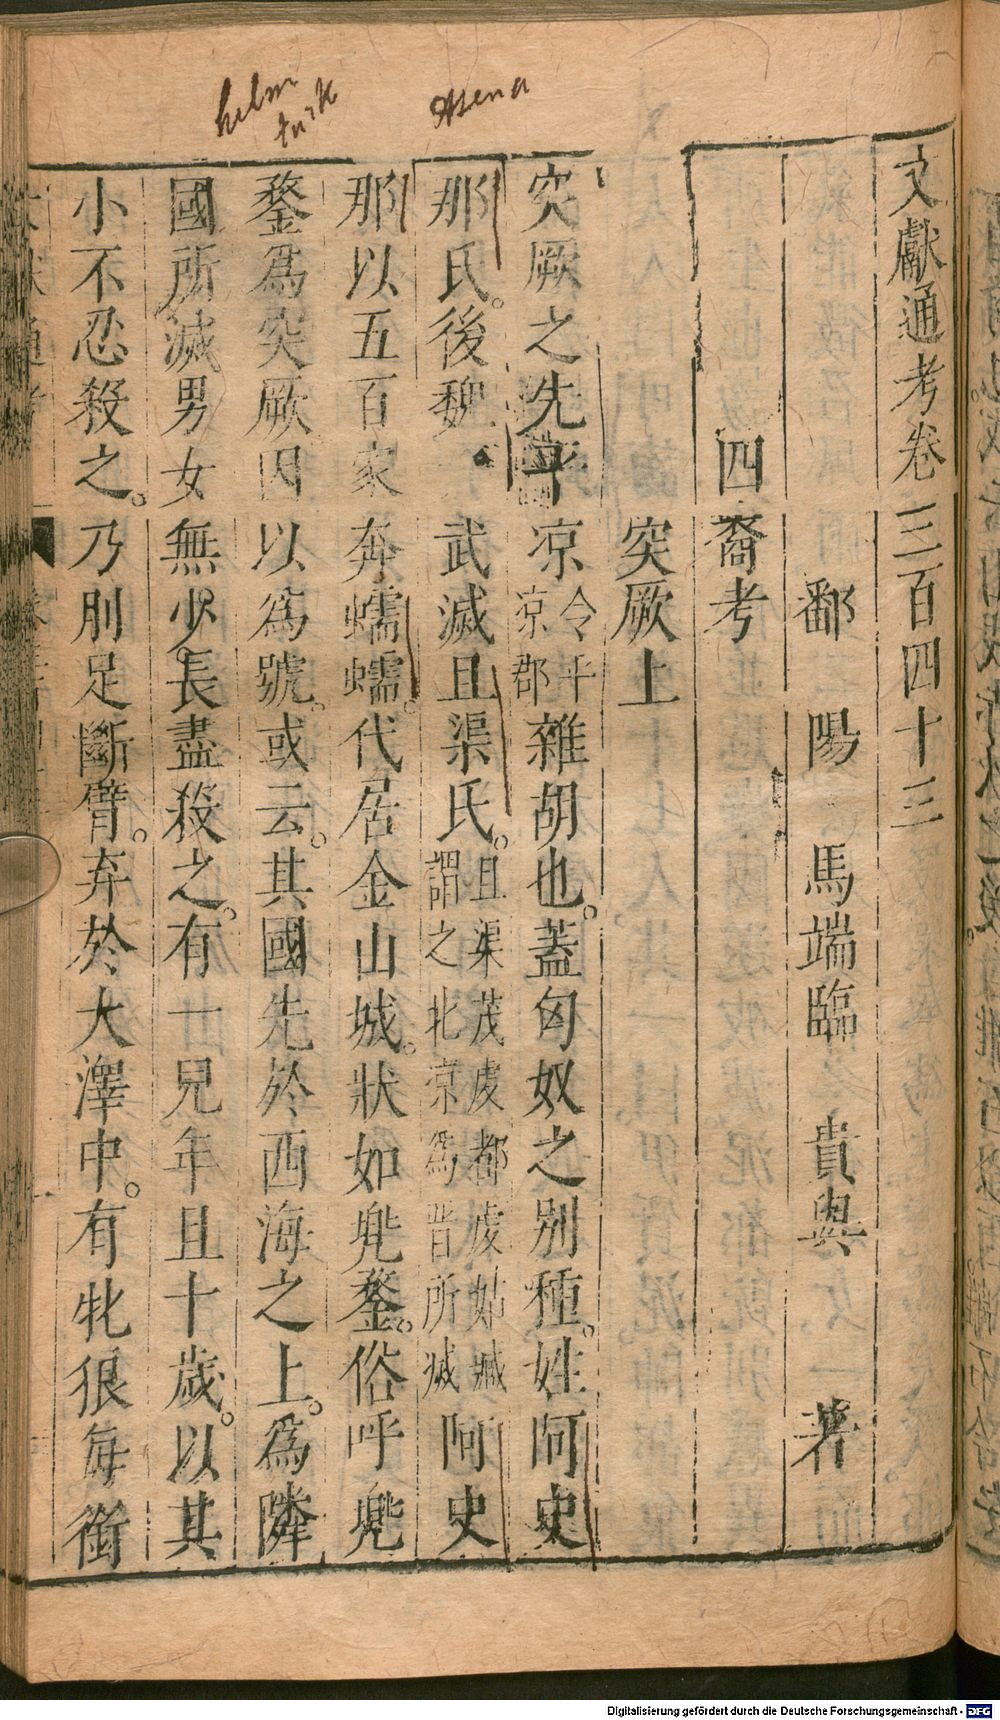 helm
turk
Asena
文獻通考卷三百四十三
鄱陽馬端臨貴與著
四裔考
突厥上
突厥之先平凉今平凉郡雜胡也。蓋匈奴之別種。姓阿史
那氏。後魏武滅且渠氏。且渠茂虔都虔姑臧謂之北凉為晉所滅阿史
那以五百家奔蠕蠕。代居金山城。狀如兠鍪。俗呼兠
鍪爲突厥因以爲號。或云。其國先於西海之上。爲隣
國所滅男女無少長盡殺之。有一兒年且十歲。以其
小不忍殺之。乃刖足斷臂。弃於大澤中。有牝狼每銜
Digitalisierung gefördert durch die Deutsche Forschungsgemeinschaft - DFG